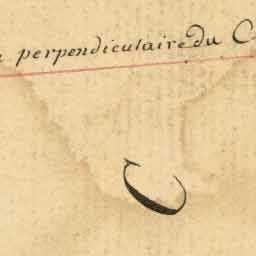 perpendiculaire du C
C